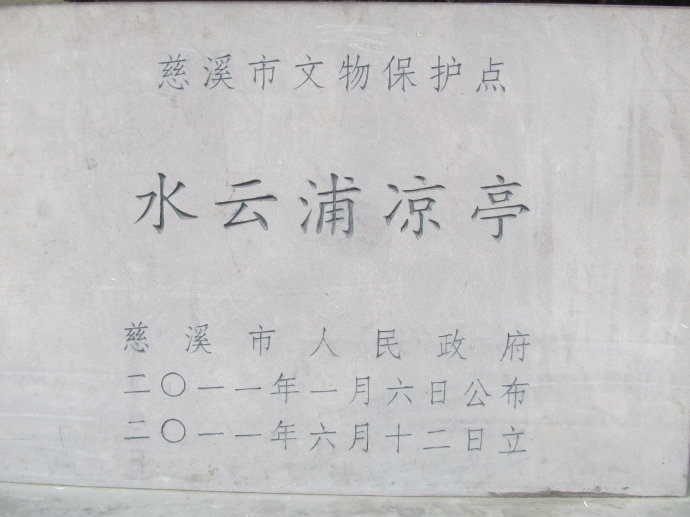 慈溪市文物保护点
水云浦凉亭
慈溪市人民政府
二〇一一年一月六日公布
二〇一一年六月十二日立